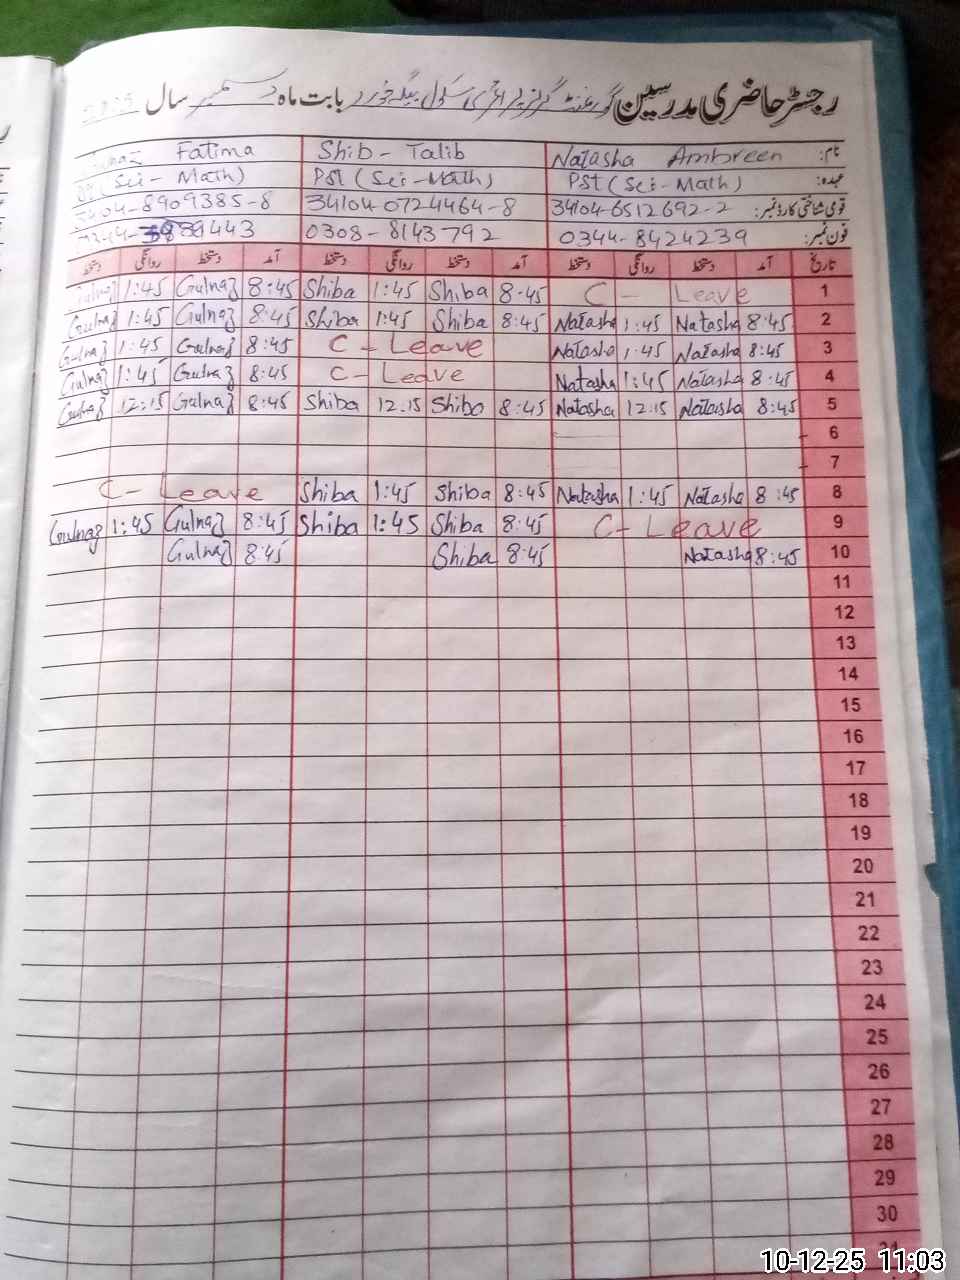 رجسٹر حاضری مدرسین گورنمنٹ گرلز پرائمری سکول بابت ماہ دسمبر سال
نام: Natasha Ambreen Shib - Talib Fatima
عہدہ: PST (Sci-Math) PST (Sci-Math) (Sci-Math)
قومی شناختی کارڈ نمبر: 34104-6512692-2 34104-0724464-8 8909385-8
فون نمبر: 0344-8424239 0308-8143792 443
تاریخ آمد دستخط روانگی دستخط آمد دستخط روانگی دستخط آمد دستخط روانگی دستخط
1:45 Gulnaz 8:45 Shiba 1:45 Shiba 8:45 C - Leave 1
Gulnaz 1:45 Gulnaz 8:45 Shiba 1:45 Shiba 8:45 Natasha 1:45 Natasha 8:45 2
Gulnaz 1:45 Gulnaz 8:45 C - Leave Natasha 1:45 Natasha 8:45 3
Gulnaz 1:45 Gulnaz 8:45 C - Leave Natasha 1:45 Natasha 8:45 4
Gulnaz 12:15 Gulnaz 8:45 Shiba 12:15 Shiba 8:45 Natasha 12:15 Natasha 8:45 5
6
7
C - Leave Shiba 1:45 Shiba 8:45 Natasha 1:45 Natasha 8:45 8
Gulnaz 1:45 Gulnaz 8:45 Shiba 1:45 Shiba 8:45 C - Leave 9
Gulnaz 8:45 Shiba 8:45 Natasha 8:45 10
11
12
13
14
15
16
17
18
19
20
21
22
23
24
25
26
27
28
29
30
10-12-25 11:03